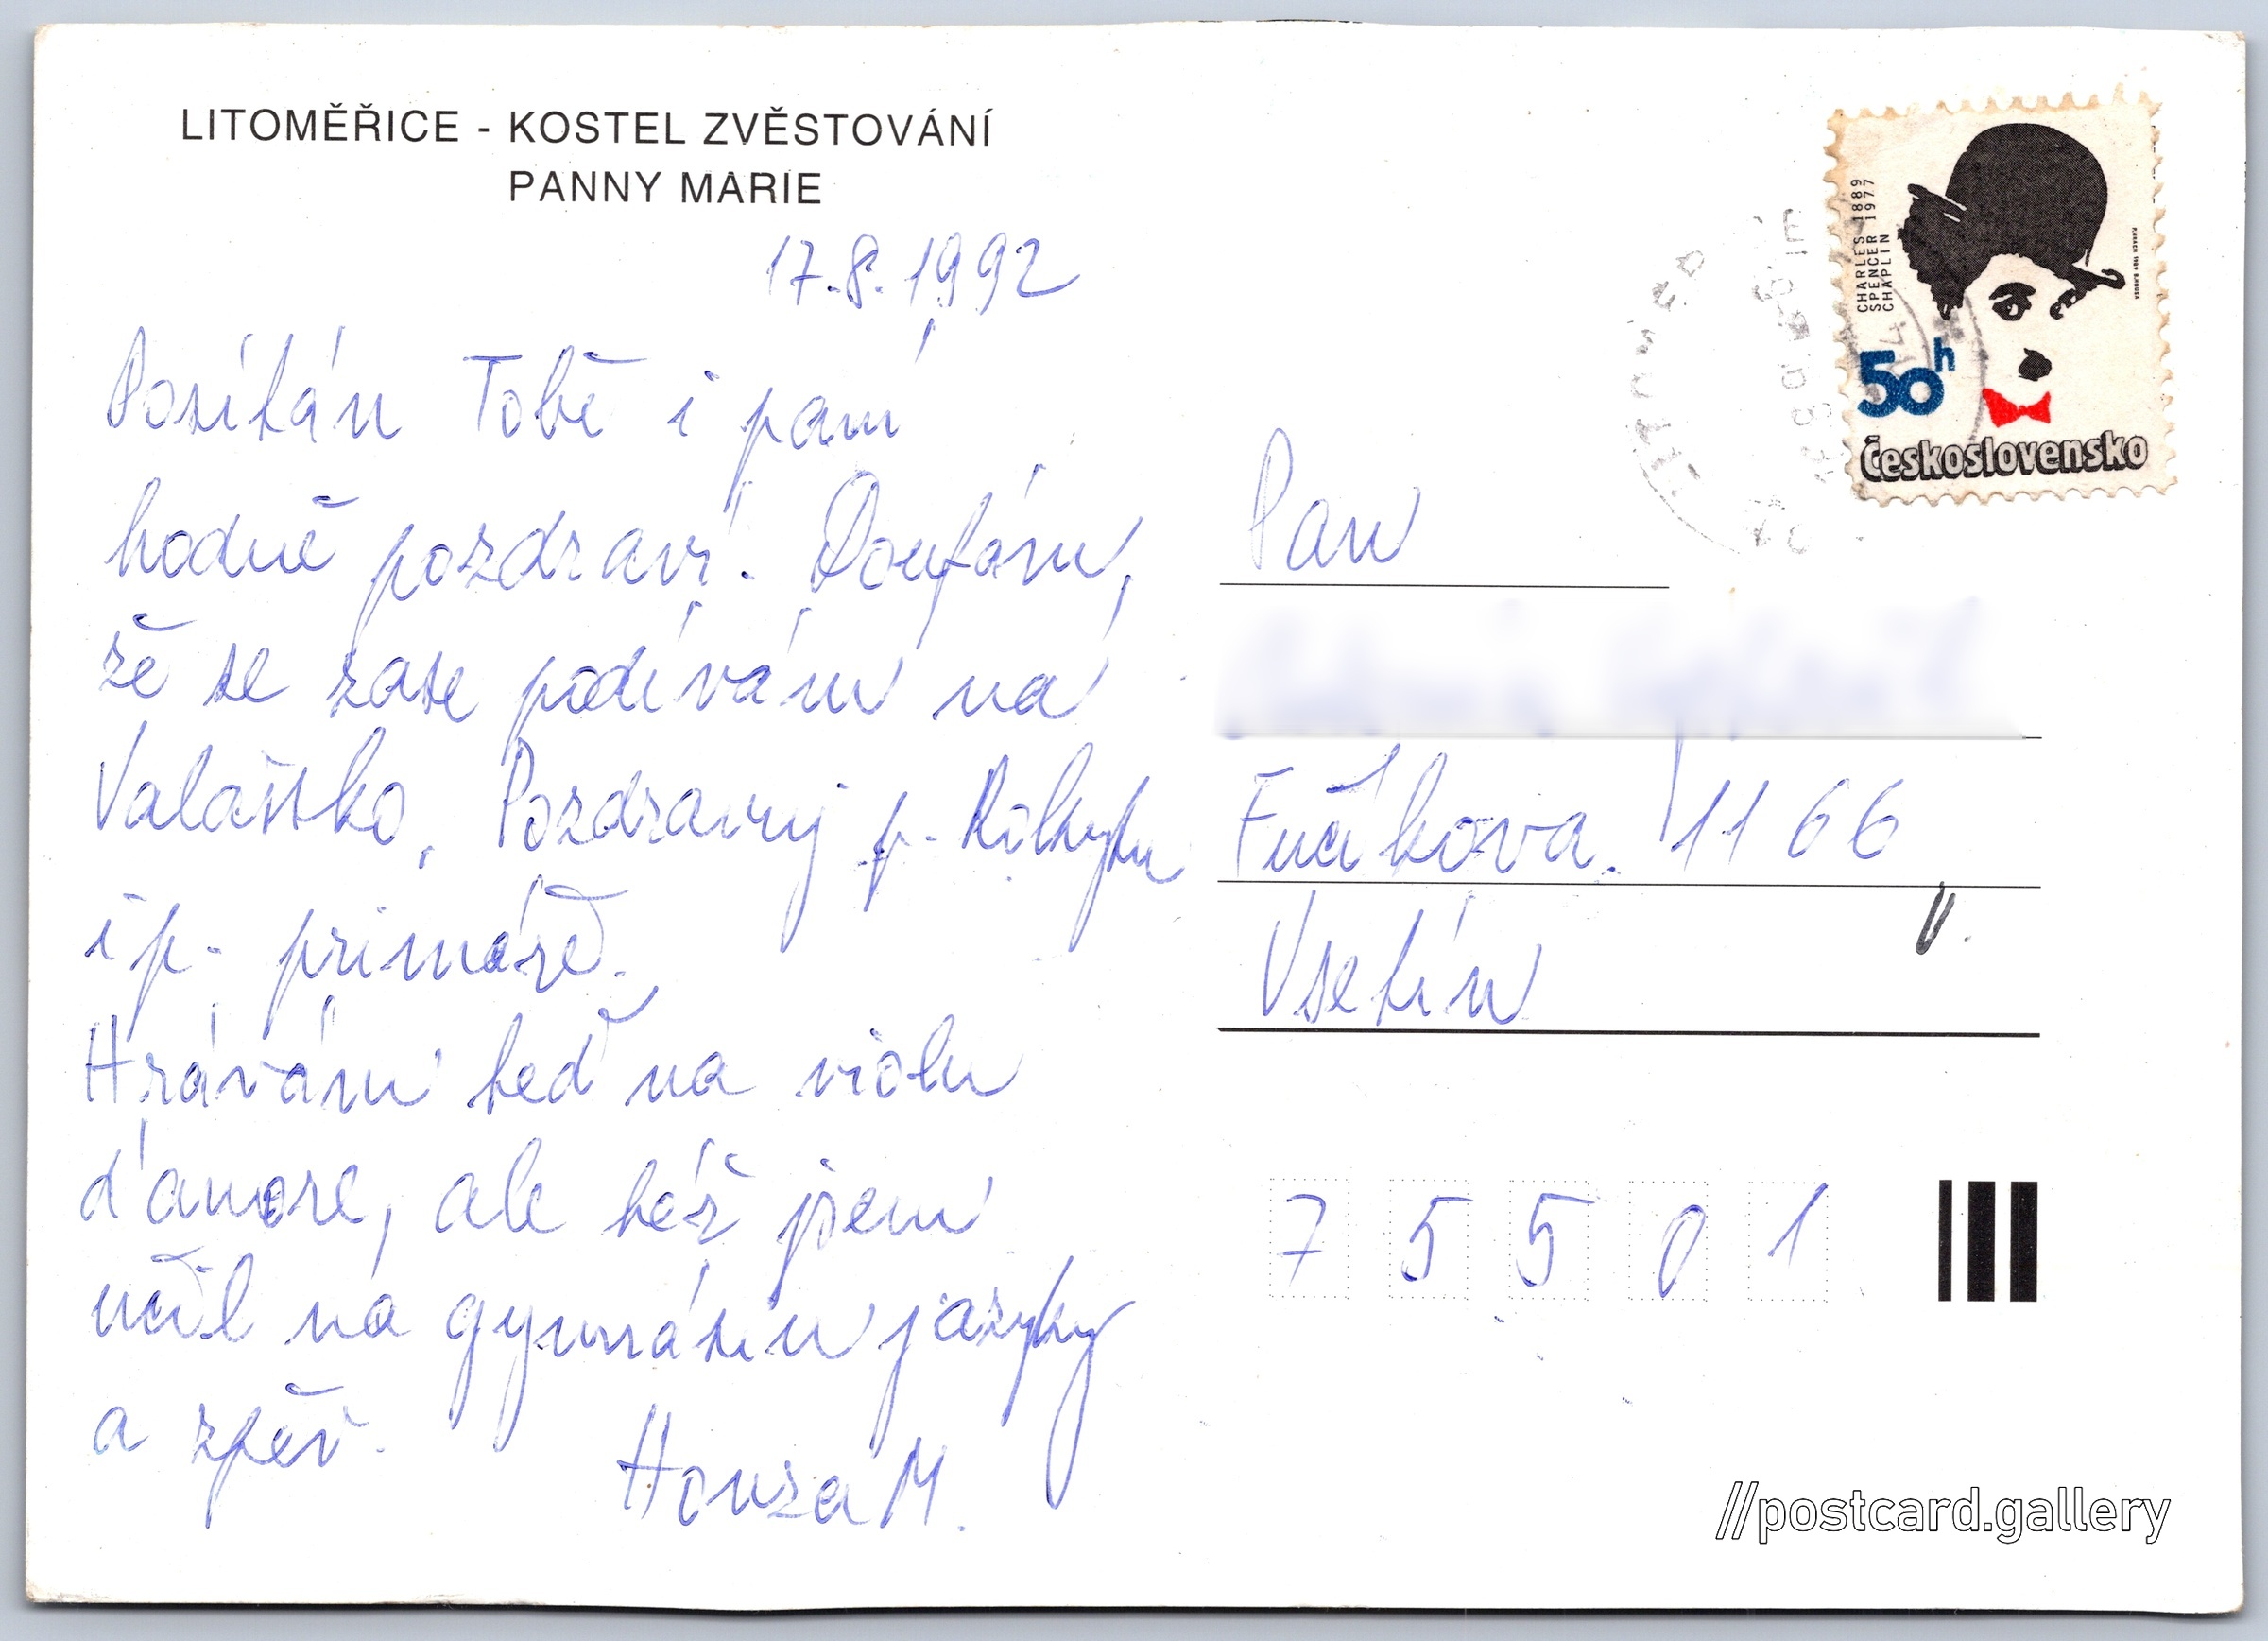 LITOMĚŘICE - KOSTEL ZVĚSTOVÁNÍ
PANNY MARIE
17.8.1992
Posílám Tobě i paní
hodně pozdravů. Doufám,
že se zase podívám na
Valašsko. Pozdravuj p.
i p. primáře.
Hrávám teď na violu
d'amore, ale též jsem
učil na gymnásiu jazyky
a zpěv.
Honza M.
CHARLES 1889
SPENCER 1977
CHAPLIN
50h
Československo
Pan
Fučíkova 1166
Vsetín
V.
75501
//postcard.gallery